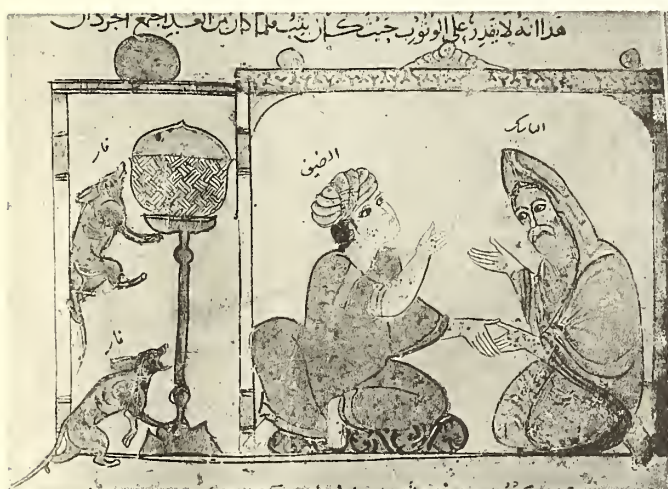 هدا انه لا يقدر على الوثوب حيث كان يثب فلما كان من الغد اجتمع الجردان
الناسك
الضيف
فار
فار